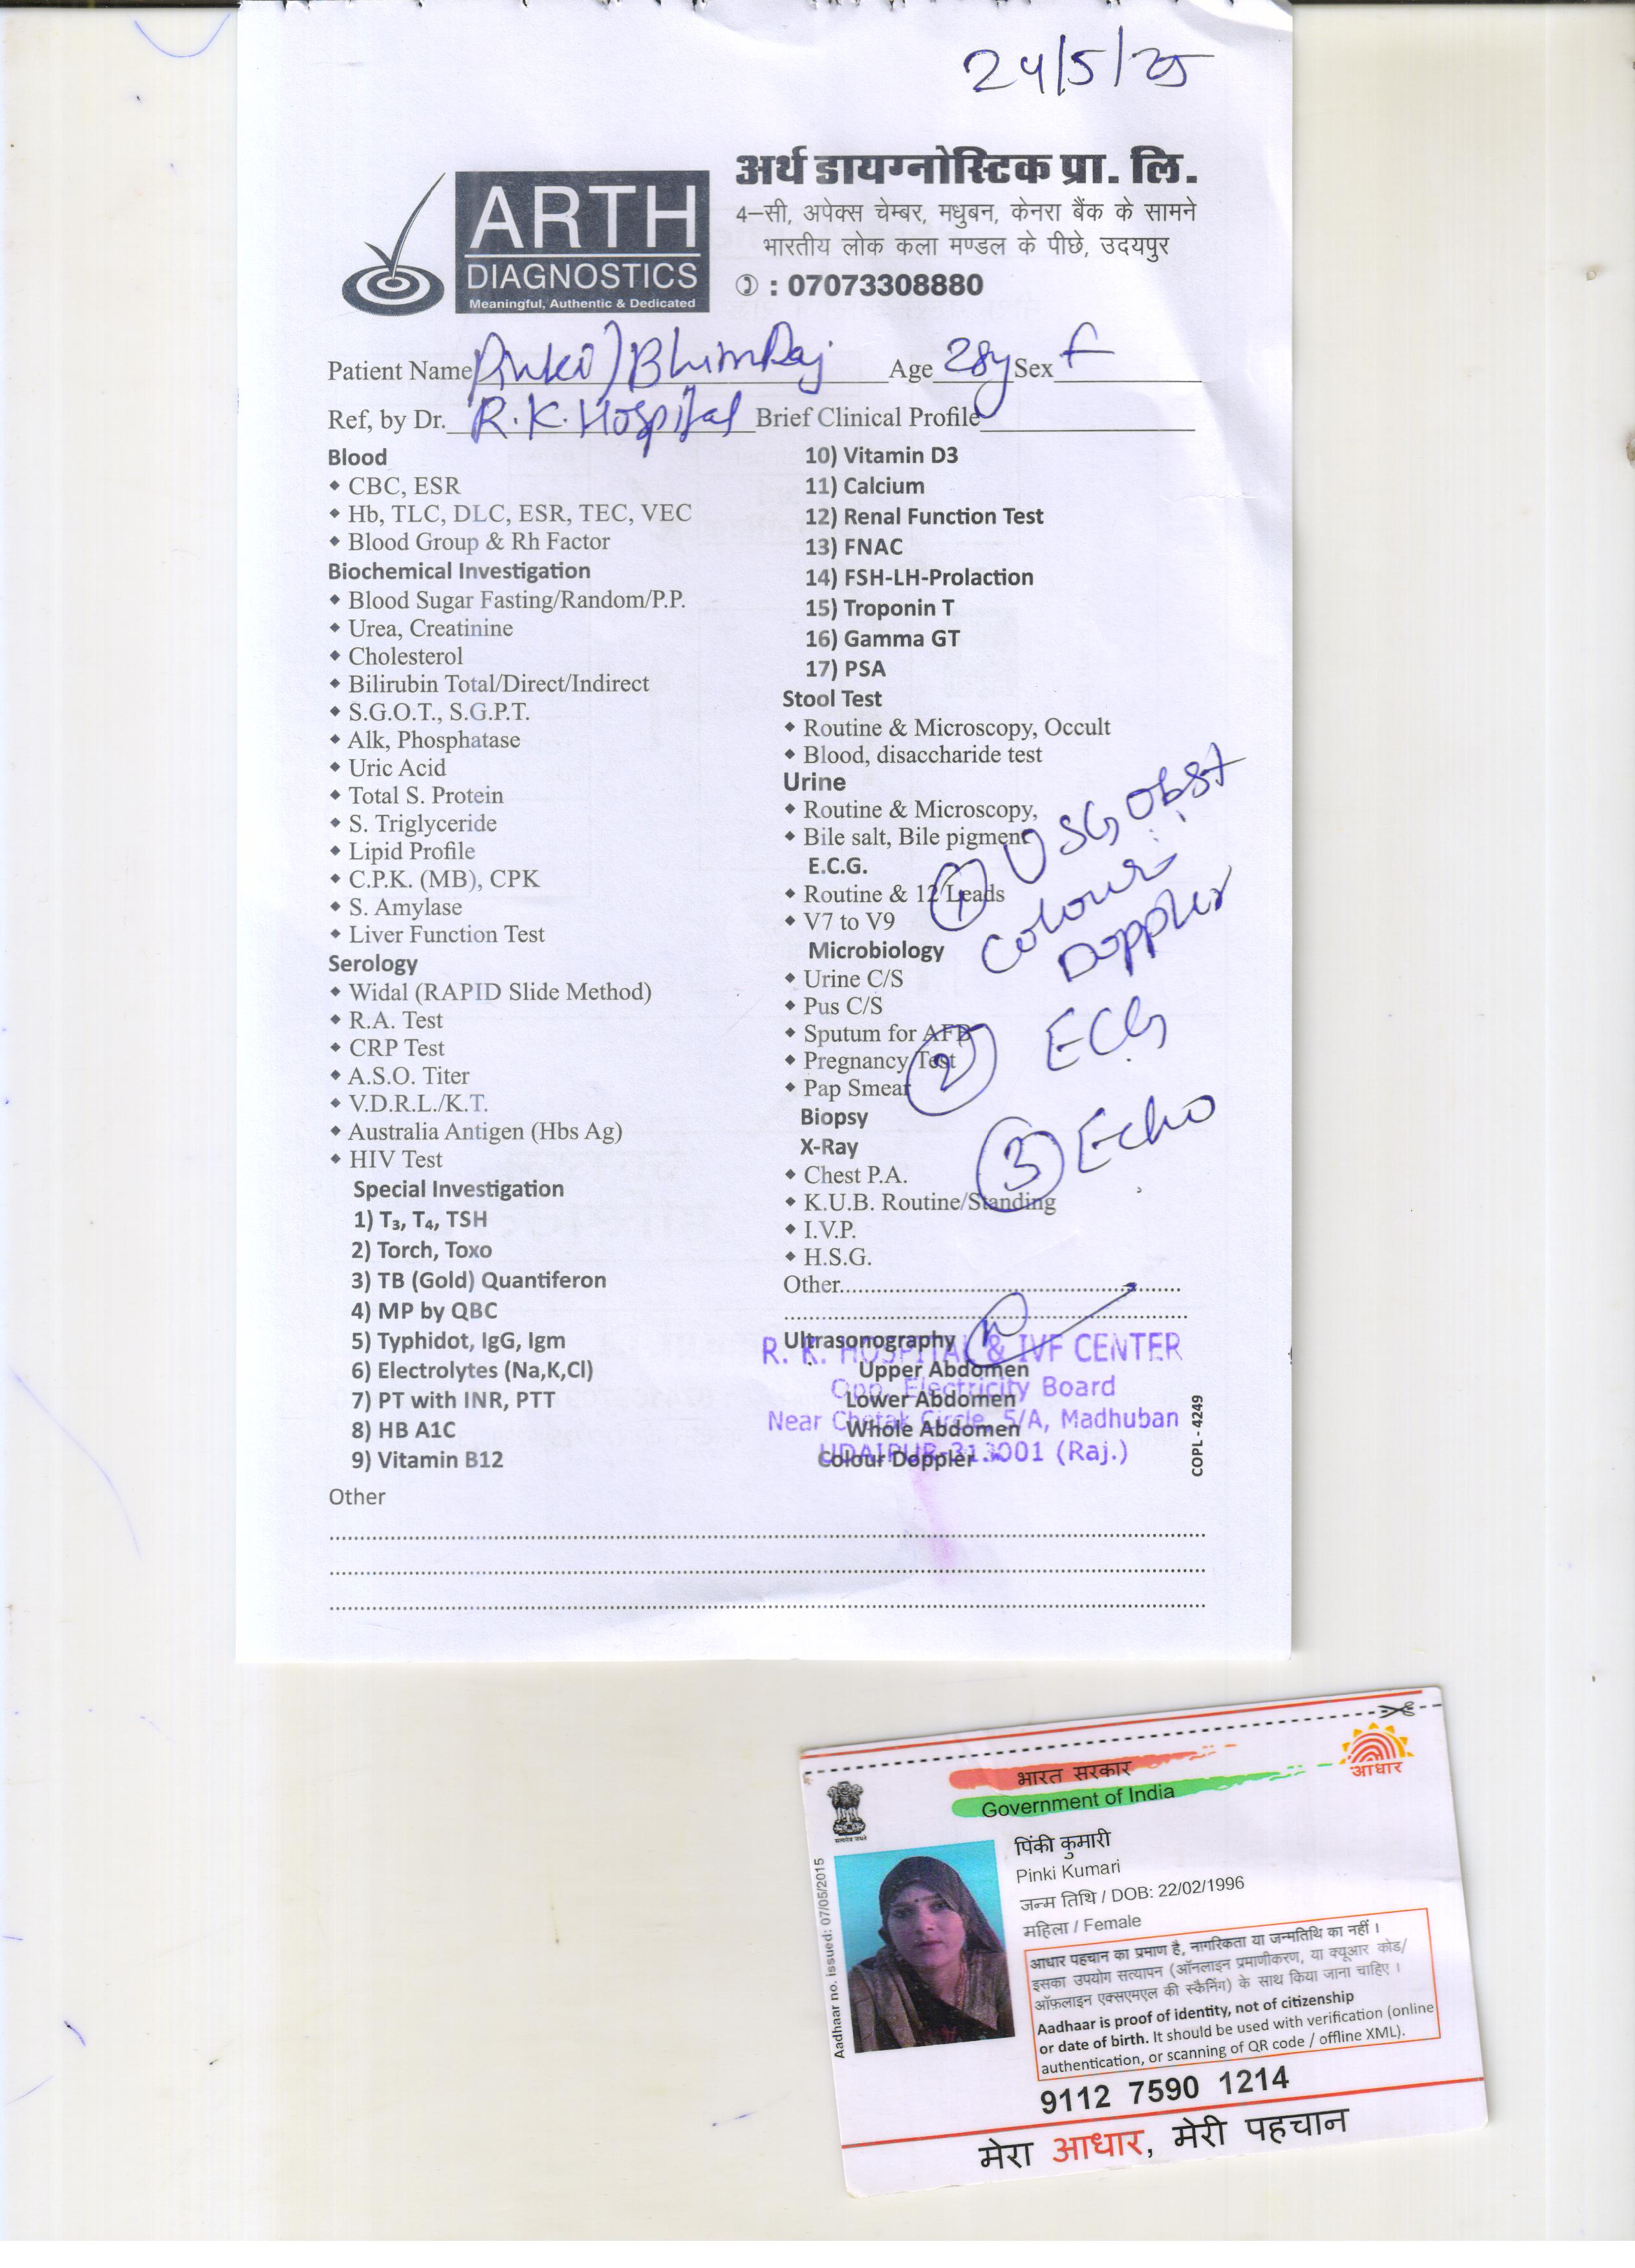 24/5/25
ARTH
DIAGNOSTICS
Meaningful, Authentic & Dedicated
अर्थ डायग्नोस्टिक प्रा. लि.
4-सी, अपेक्स चेम्बर, मधुबन, केनरा बैंक के सामने
भारतीय लोक कला मण्डल के पीछे, उदयपुर
: 07073308880
Patient Name Pinki) BhimRaj Age 28y Sex F
Ref, by Dr. R.K. Hospital Brief Clinical Profile
Blood
CBC, ESR
Hb, TLC, DLC, ESR, TEC, VEC
Blood Group & Rh Factor
Biochemical Investigation
Blood Sugar Fasting/Random/P.P.
Urea, Creatinine
Cholesterol
Bilirubin Total/Direct/Indirect
S.G.O.T., S.G.P.T.
Alk, Phosphatase
Uric Acid
Total S. Protein
S. Triglyceride
Lipid Profile
C.P.K. (MB), CPK
S. Amylase
Liver Function Test
Serology
Widal (RAPID Slide Method)
R.A. Test
CRP Test
A.S.O. Titer
V.D.R.L./K.T.
Australia Antigen (Hbs Ag)
HIV Test
Special Investigation
1) T₃, T₄, TSH
2) Torch, Toxo
3) TB (Gold) Quantiferon
4) MP by QBC
5) Typhidot, IgG, Igm
6) Electrolytes (Na,K,Cl)
7) PT with INR, PTT
8) HB A1C
9) Vitamin B12
10) Vitamin D3
11) Calcium
12) Renal Function Test
13) FNAC
14) FSH-LH-Prolaction
15) Troponin T
16) Gamma GT
17) PSA
Stool Test
Routine & Microscopy, Occult
Blood, disaccharide test
Urine
Routine & Microscopy,
Bile salt, Bile pigment
E.C.G.
Routine & 12 Leads
V7 to V9
Microbiology
Urine C/S
Pus C/S
Sputum for AFB
Pregnancy Test
Pap Smear
Biopsy
X-Ray
Chest P.A.
K.U.B. Routine/Standing
I.V.P.
H.S.G.
Other
1 USG Obst
Colour
Doppler
2 ECG
3 Echo
Ultrasonography
Upper Abdomen
Lower Abdomen
Whole Abdomen
Colour Doppler
R. K. HOSPITAL & IVF CENTER
Opp. Electricity Board
Near Chetak Circle, 5/A, Madhuban
UDAIPUR-313001 (Raj.)
COPL - 4249
Other
भारत सरकार
Government of India
आधार
सत्यमेव जयते
Aadhaar no. issued: 07/05/2015
पिंकी कुमारी
Pinki Kumari
जन्म तिथि / DOB: 22/02/1996
महिला / Female
आधार पहचान का प्रमाण है, नागरिकता या जन्मतिथि का नहीं ।
इसका उपयोग सत्यापन (ऑनलाइन प्रमाणीकरण, या क्यूआर कोड/
ऑफ़लाइन एक्सएमएल की स्कैनिंग) के साथ किया जाना चाहिए ।
Aadhaar is proof of identity, not of citizenship
or date of birth. It should be used with verification (online
authentication, or scanning of QR code / offline XML).
9112 7590 1214
मेरा आधार, मेरी पहचान